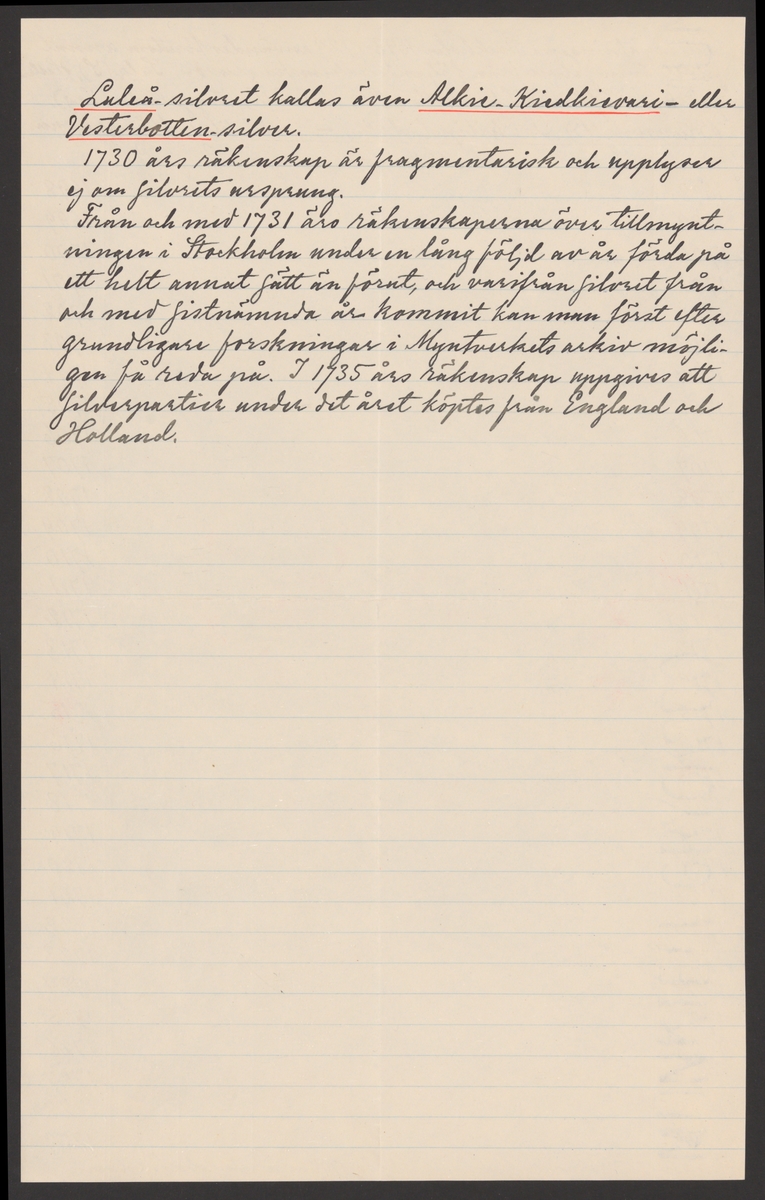 Luleå-silvret kallas även Alkie-Kiedkievari- eller
Vesterbotten-silver.
1730 års räkenskap är fragmentarisk och upplyser
ej om silvrets ursprung.
Från och med 1731 äro räkenskaperna över tillmynt-
ningen i Stockholm under en lång följd av år förda på
ett helt annat sätt än förut, och varifrån silvret från
och med sistnämnda år kommit kan man först efter
grundligare forskningar i Myntverkets arkiv möjli-
gen få reda på. I 1735 års räkenskap uppgives att
silverpartier under det året köptes från England och
Holland.